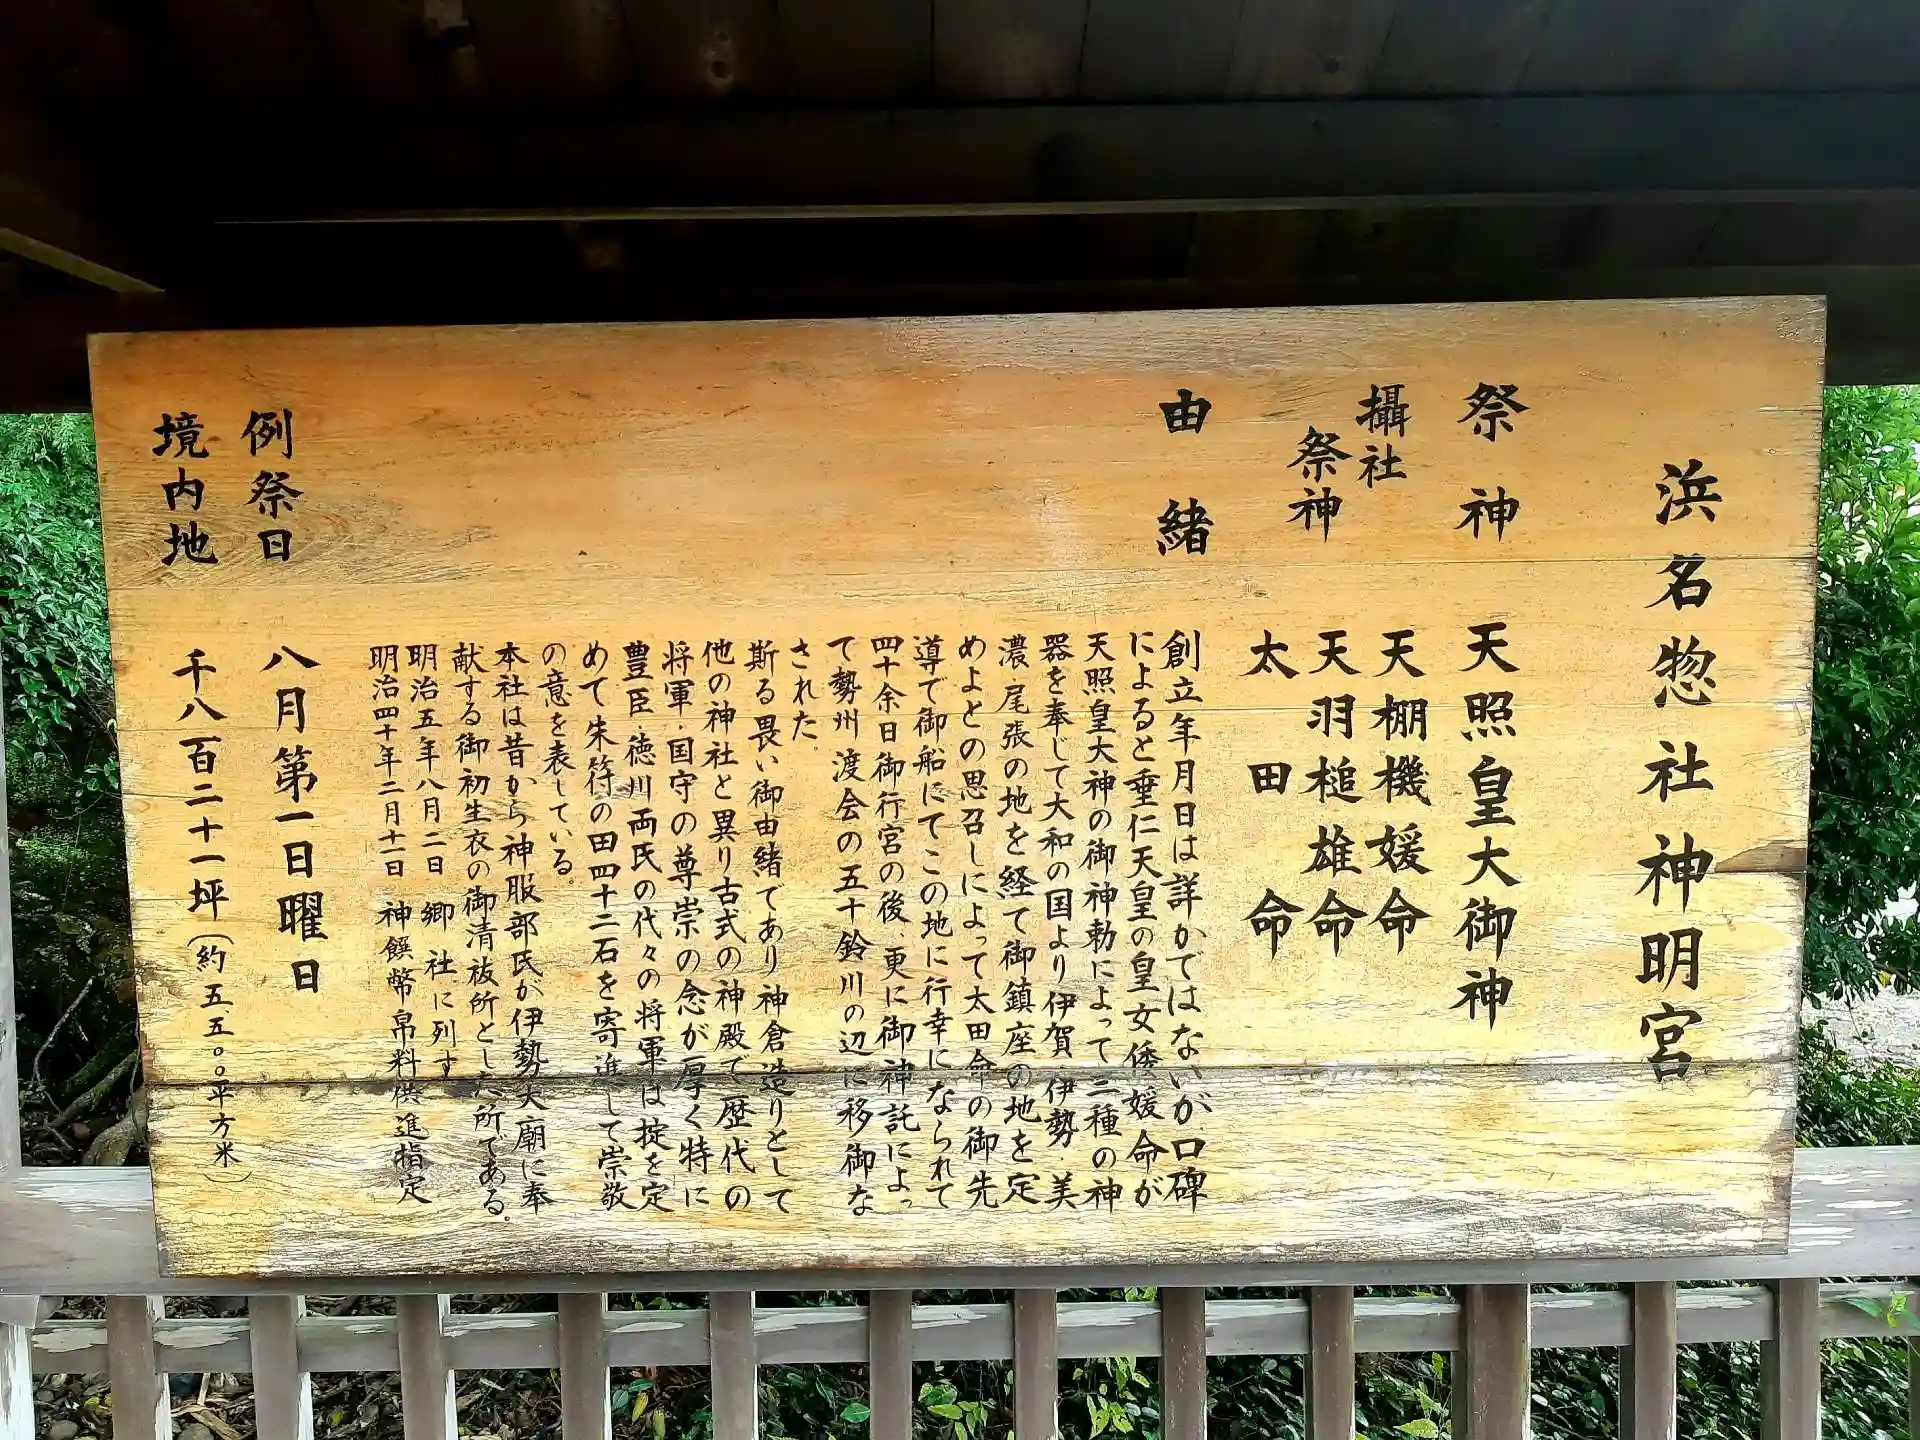 浜名惣社神明宮
祭神 天照皇大御神
攝社
祭神 天棚機媛命
天羽槌雄命
太田命
由緒 創立年月日は詳かではないが、口碑
によると垂仁天皇の皇女倭媛命が
天照皇大神の御神勅によって三種の神
器を奉じて大和の国より伊賀・伊勢・美
濃・尾張の地を経て御鎮座の地を定
めよとの思召しによって太田命の御先
導で御船にてこの地に行幸になられて
四十余日御行宮の後、更に御神託によっ
て勢州渡会の五十鈴川の辺に移御な
された。
斯る畏い御由緒であり神倉造りとして
他の神社と異り古式の神殿で歴代の
将軍・国守の尊崇の念が厚く特に
豊臣・徳川両氏の代々の将軍は掟を定
めて朱符の田四十二石を寄進して崇敬
の意を表している。
本社は昔から神服部氏が伊勢大廟に奉
献する御初生衣の御清祓所とした所である。
明治五年八月二日 郷社に列す
明治四十年二月十一日 神饌幣帛料供進指定
例祭日 八月第一日曜日
境内地 千八百二十一坪(約五五〇〇平方米)